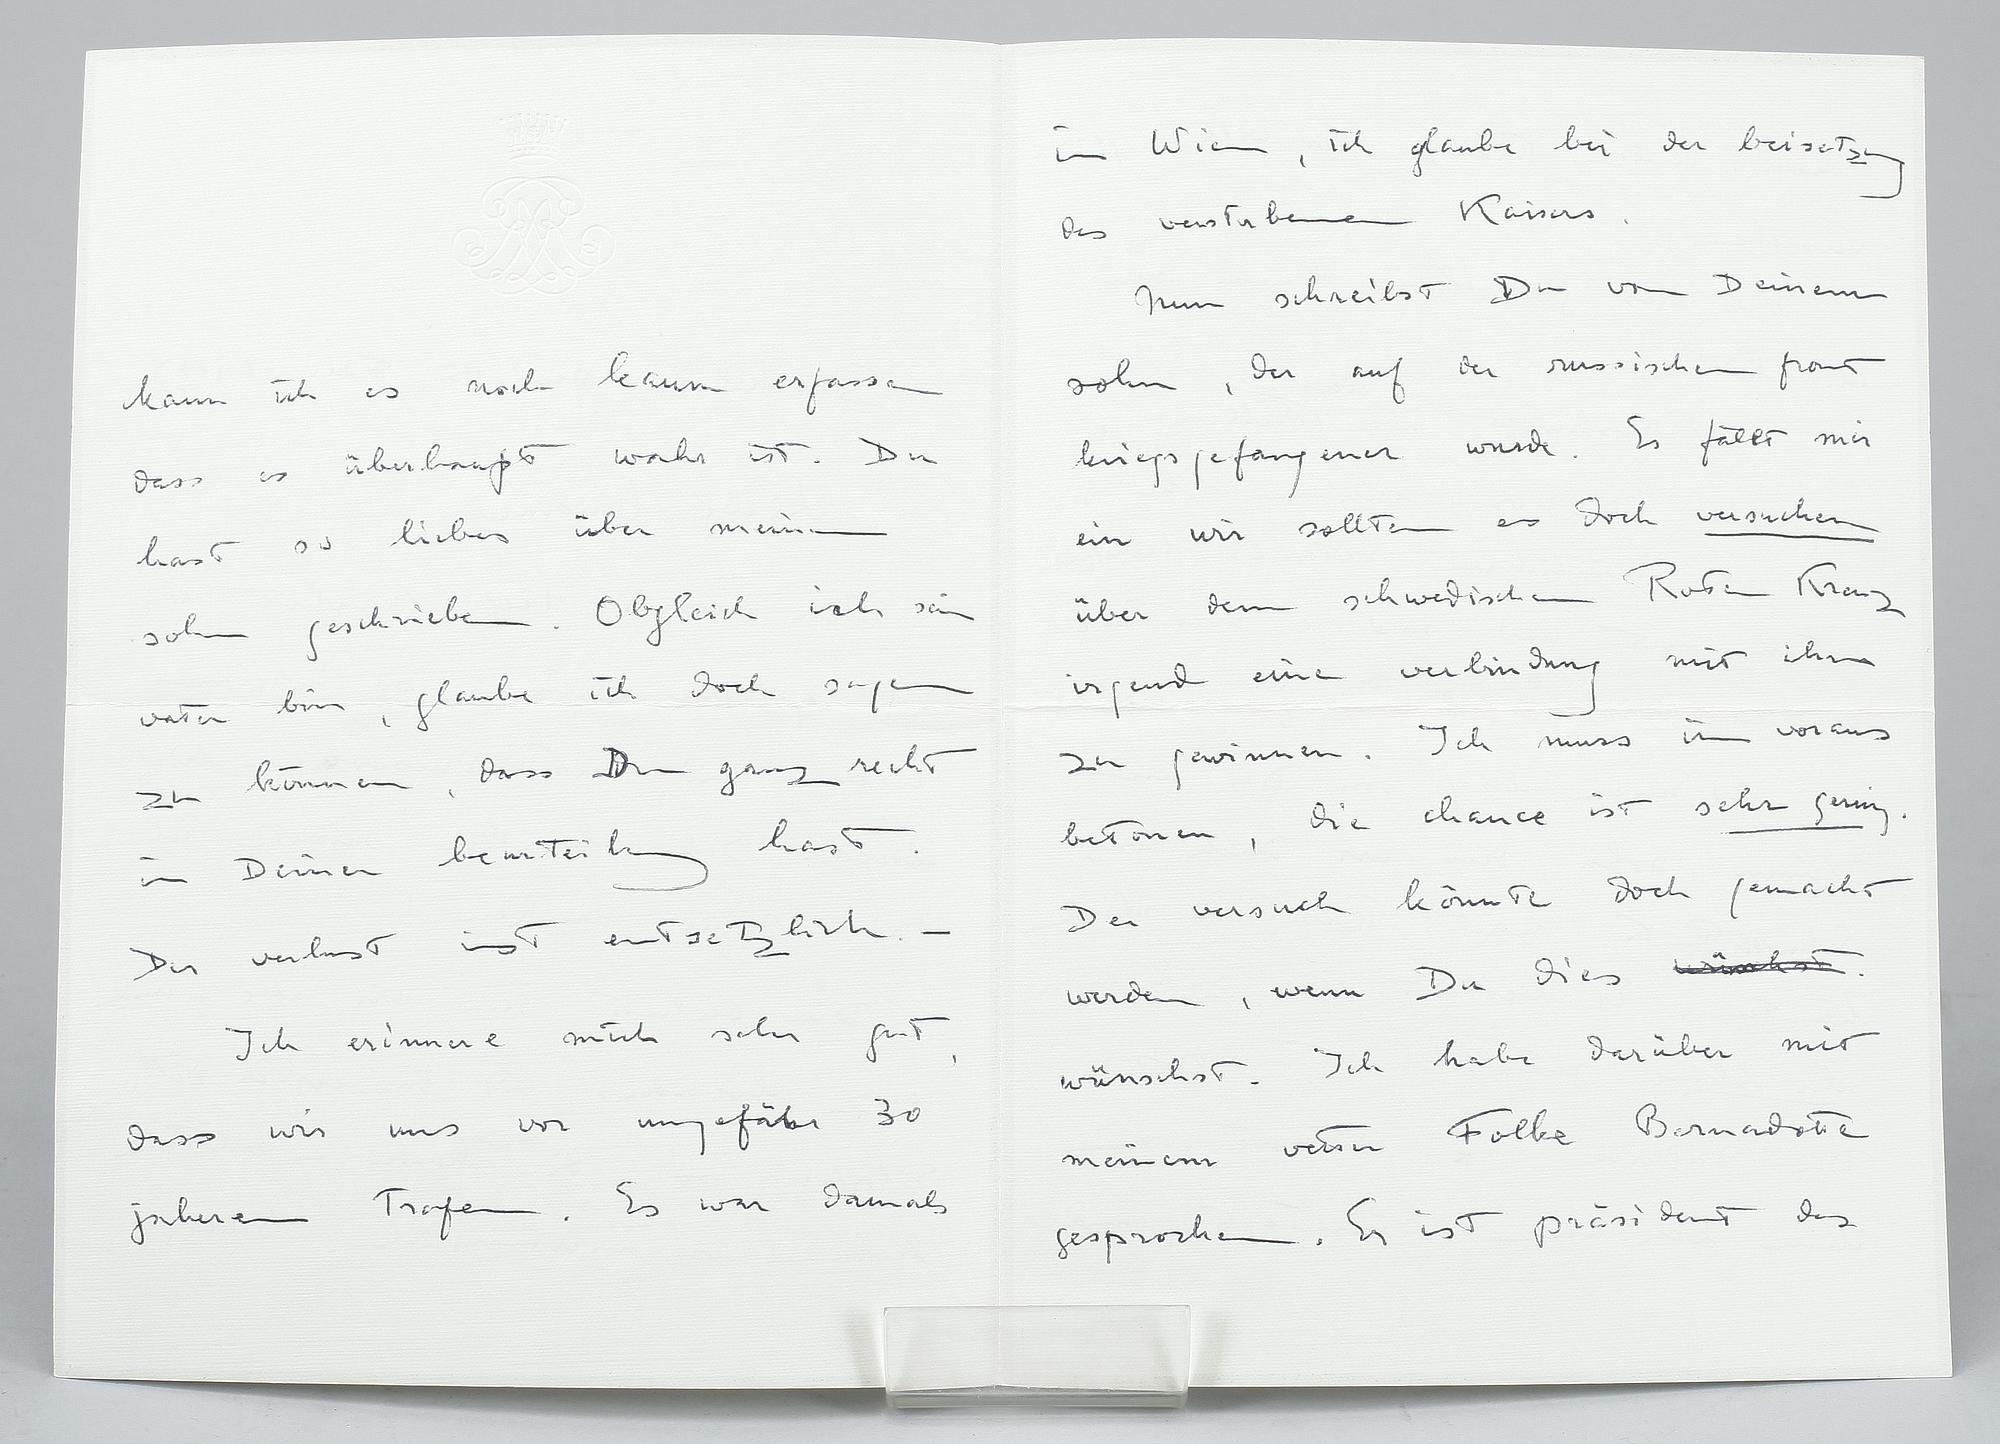 kann ich es noch kaum erfassen
dass es überhaupt wahr ist. Du
hast so liebes über meinen
sohn geschrieben. Obgleich ich sein
vater bin, glaube ich doch sagen
zu können, dass Du ganz recht
in Deiner beurteilung hast.
Der verlust ist entsetzlich. –
Ich erinnere mich sehr gut,
dass wir uns vor ungefähr 30
jahren trafen. Es war damals
in Wien, ich glaube bei der beisetzung
des verstorbenen Kaisers.
Nun schreibst Du von Deinem
sohn, der auf der russischen front
kriegsgefangener wurde. Es fällt mir
ein wir sollten es doch versuchen
über dem schwedischen Roten Kreuz
irgend eine verbindung mit ihm
zu gewinnen. Ich muss im voraus
betonen, die chance ist sehr gering.
Der versuch könnte doch gemacht
werden, wenn Du dies wünschst.
wünschst. Ich habe darüber mit
meinem vetter Folke Bernadotte
gesprochen. Er ist präsident des